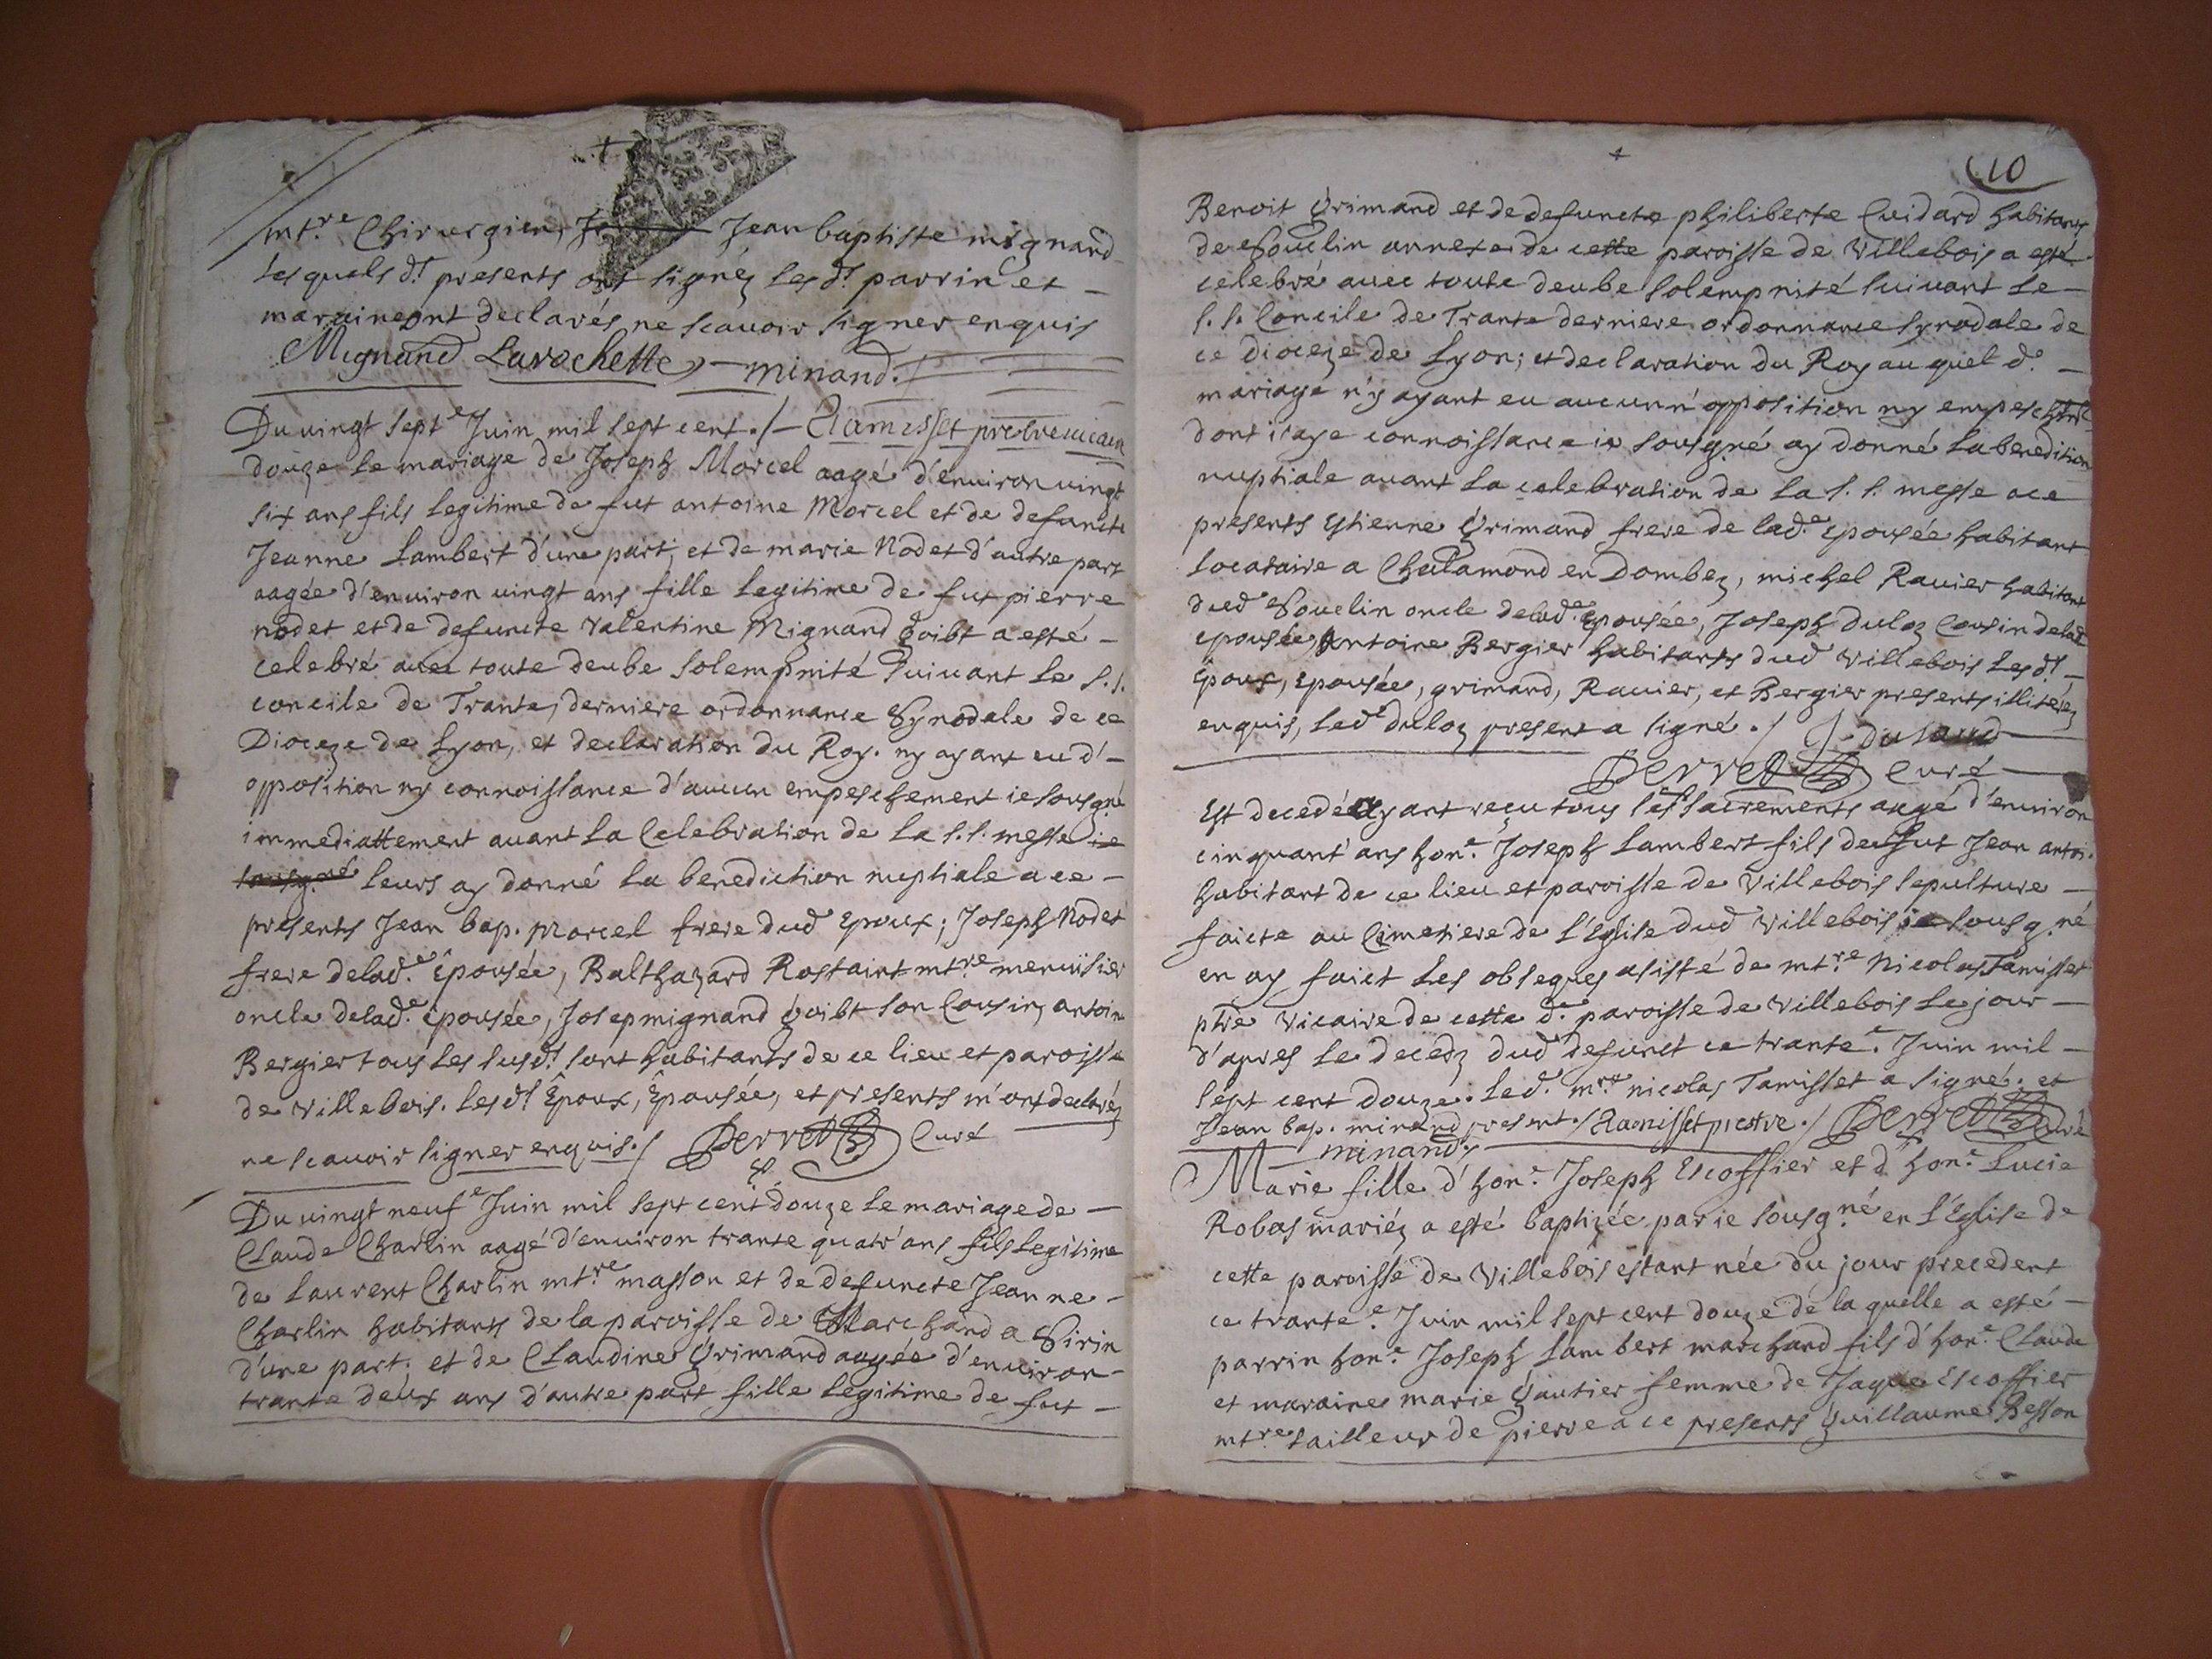 mt.re Chirurgien, Jean baptiste mignand
lesquels d.t presents ont signéz les d.t parrin et
maraine ont declarés ne scavoir signer enquis
Mignand Larochette minand./
Du vingt sept.e Juin mil sept cent ./ Tamisset prebre vicaire
douze le mariage de Joseph Morcel aagé d'environ vingt
six ans fils legitime de fut antoine Morcel et de defuncte
Jeanne Lambert d'une part, et de marie Nodet d'autre part
aagée d'environ vingt ans fille legitime de fut pierre
nodet et de defuncte valentine Mignand goibt a esté
celebré avec toute deube solempnité suivant le s.s.
concile de Trante, derniere ordonnance Synodale de ce
Dioceze de Lyon, et declaration du Roy. ny ayant eu d'
opposition ny connoissance d'aucun empeschement ie sousgné
immediattement avant la Celebration de la s.s. messe ie
sousg.né leurs ay donné la benediction nuptiale a ce
presents Jean bap. morcel frere dud Epoux; Joseph Nodet
frere delad.e Epousée, Balthazard Rostaint mt.re menuisier
oncle delad.e epousée, Josep mignand goibt son Cousin, antoine
Bergier tous les susd.t sont habitants de ce lieu et paroisse
de Villebois. lesd.t Epoux, Epousée, et presents m'ont declaréz
ne scavoir signer enquis./ Perret Curé
Du vingt neuf.e Juin mil sept cent douze le mariage de
Claude Charlin aagé d'environ trante quatr'ans fils legitime
de Laurent Charlin mt.re masson et de defuncte Jeanne
Charlin habitants de la paroisse de Marchand a Sirin
d'une part; et de Claudine Grimand aagée d'environ
trante deux ans d'autre part fille legitime de fut
10
Benoit Grimand et de defuncte philiberte Cuidard habitants
de Souclin annexe de cette paroisse de Villebois a esté
celebré avec toute deube solempnité suivant le
s.s. Concile de Trante derniere ordonnance synodale de
ce dioceze de Lyon; et declaration du Roy au quel d.e
mariage n'y ayant eu aucunn' opposition ny empeschemt
dont i'aye connoissance ie sousgné ay donné la benedition
nuptiale avant la celebration de la s.s. messe a ce
presents Estienne Grimand frere de lad.e epousée habitant
locataire a Chalamond en Dombez, michel Ravier habitant
dud Souclin oncle delad.e Epousée, Joseph duloz Cousin delad
epousée, Antoine Bergier habitants dud Villebois lesd.t
Epoux, epousée, grimand, Ravier, et Bergier presents illiteréz
enquis, led.e duloz present a signé ./
Perret Curé
Est decedé ayant reçu tous les sacrements aagé d'environ
cinquant'ans hon.e Joseph Lambert fils de fut Jean antoi.
habitant de ce lieu et paroisse de Villebois sepulture
faicte au Cimetiere de l'Eglise dud Villebois ie sousg.né
en ay faict les obseques asisté de mt.re Nicolas Tamisset
ptre Vicaire de cette d.e paroisse de Villebois le jour
d'apres le decedz dud defunct ce trante.e Juin mil
sept cent douze. led. m.re nicolas Tamisset a signé. et
Jean bap. minand present./ Tamisset prestre ./ Perret Curé
minand./
Marie fille d'hon.e Joseph Escoffier et d'hon.e Lucie
Robas mariéz a esté baptizée par ie sousg.né en l'Eglise de
cette paroisse de Villebois estant née du jour precedent
ce trante.e Juin mil sept cent douze de laquelle a esté
parrin hon.e Joseph Lambert marchand fils d'hon.e Claude
et maraine marie Gautier femme de Jaque Escoffier
mt.re tailleur de pierre a ce presents Guillaume Besson